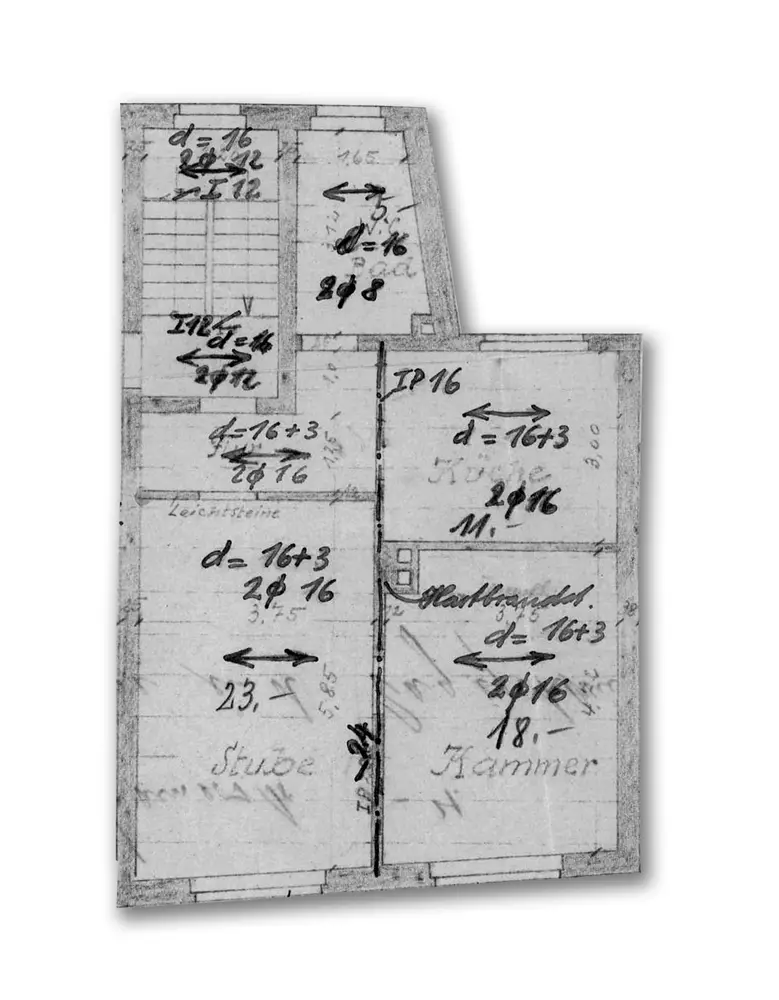 d = 16
2ϕ 12
I 12
1,65
5,-
W.C.
d = 16
Bad
2ϕ 8
I 12
d = 16
2ϕ 12
1,0
IP 16
d = 16+3
Flur
2ϕ 16
1,35
d = 16+3
Küche
3,00
2ϕ 16
11.-
Leichtsteine
d = 16+3
2ϕ 16
3,75
Hartbrandst.
3,75
d = 16+3
2ϕ 16
18.-
23.-
5,85
Stube
Kammer
IP 24
38